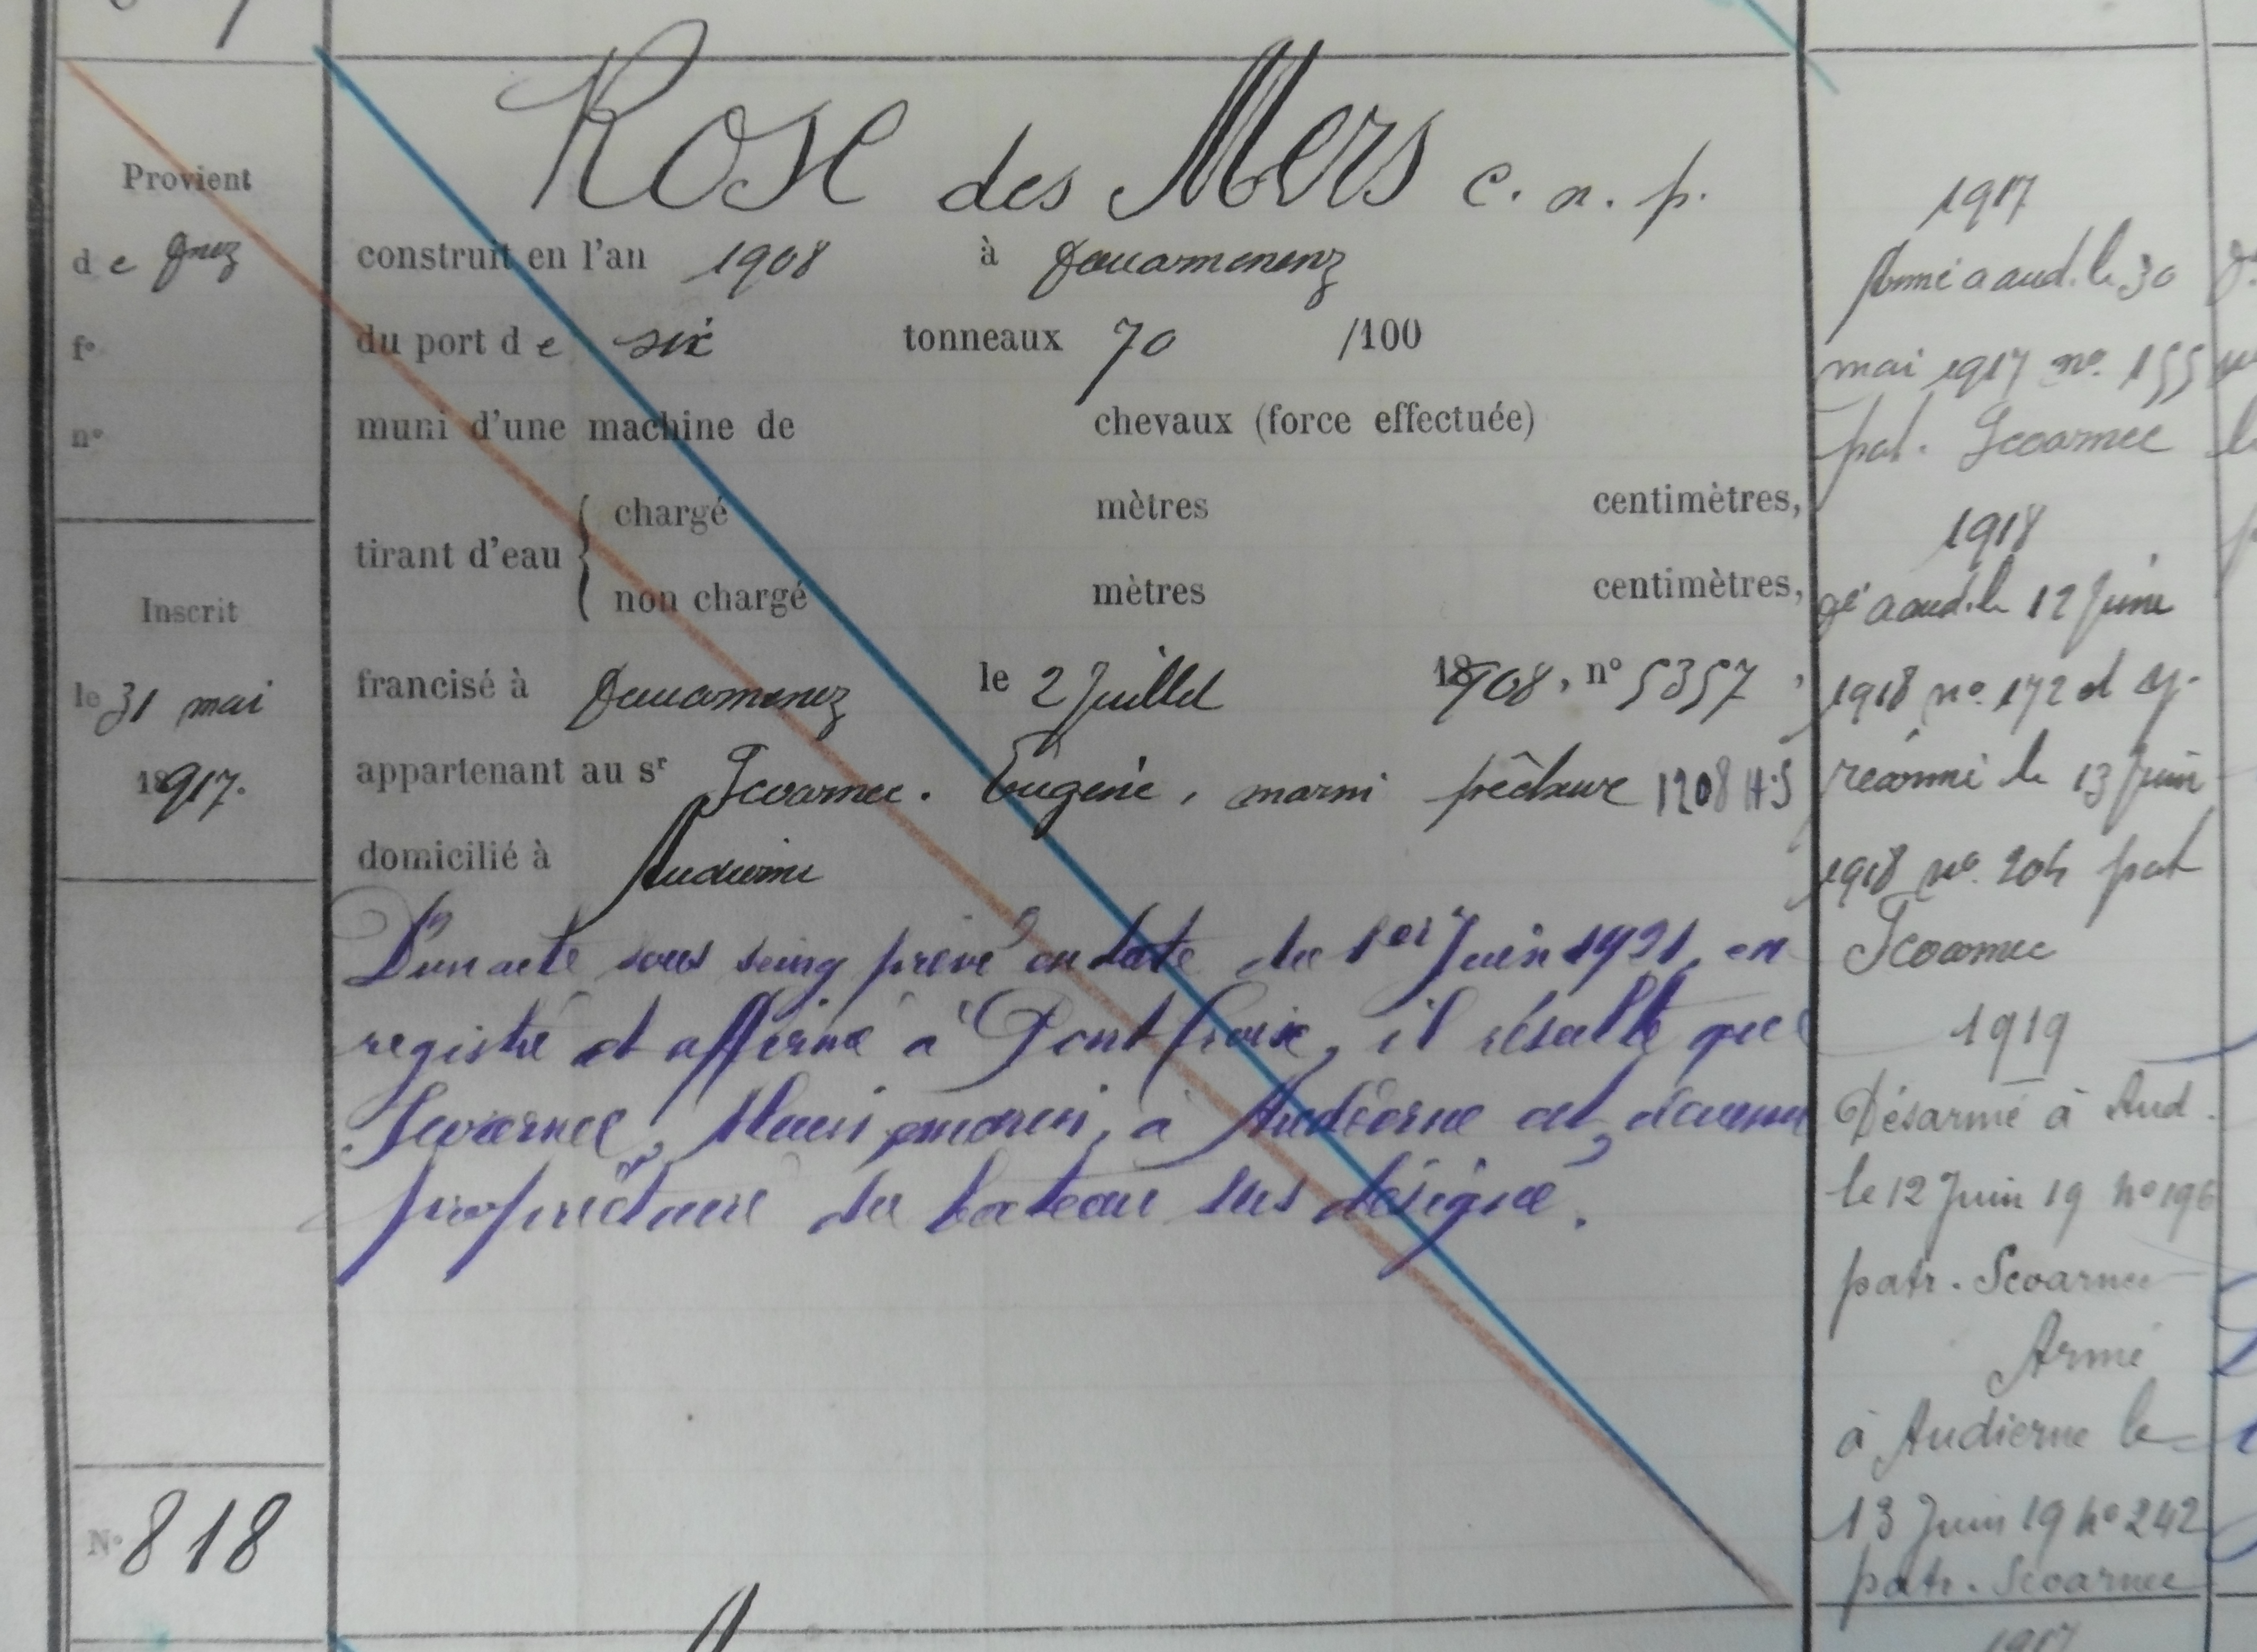 Rose des Mers c. n. p.
Provient
de Dnez
construit en l'an 1908 à Douarnenenz
du port de six tonneaux 70 /100
f°
n°
muni d'une machine de chevaux (force effectuée)
tirant d'eau
chargé mètres centimètres,
non chargé mètres centimètres,
Inscrit
le 31 mai
18917.
francisé à Douarnenez le 2 Juillet 18908, n° 5357,
appartenant au sr Scoarnec. Eugène, marin pêcheur 1208 H.S
domicilié à Audierne
D'un acte sous seing privé en date du 1er Juin 1921, en
registré et affirmé à Pont Croix, il résulte que
Scoarnec, marin, à Audierne est devenu
propriétaire du bateau sus désigné.
N° 818
1917
armé a aud. le 30
mai 1917 n° 155
pat. Scoarnec
1918
dé a aud. le 12 Juin
1918 n° 172 et
réarmé le 13 Juin
1918 n° 204 pat
Scoarnec
1919
Désarmé à Aud.
le 12 Juin 19 n° 196
patr. Scoarnec
Armé
à Audierne le
13 Juin 19 n° 242
patr. Scoarnec
1917